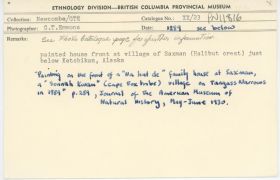 ETHNOLOGY DIVISION—BRITISH COLUMBIA PROVINCIAL MUSEUM
Collection: Newcombe/GTE Catalogue No.: XX/23 PN11816
Photographer: G.T.Emmons Date: 1889 see below
Remarks: See Photo Catalogue page for further information
painted house front at village of Saxman (Halibut crest) just
below Ketchikan, Alaska
"Painting on the front of a family house at Saxman,
a (Cape Fox tribe) village on Tongass Narrows
in 1889" p.289, Journal of the American Museum of
Natural History, May-June 1930.